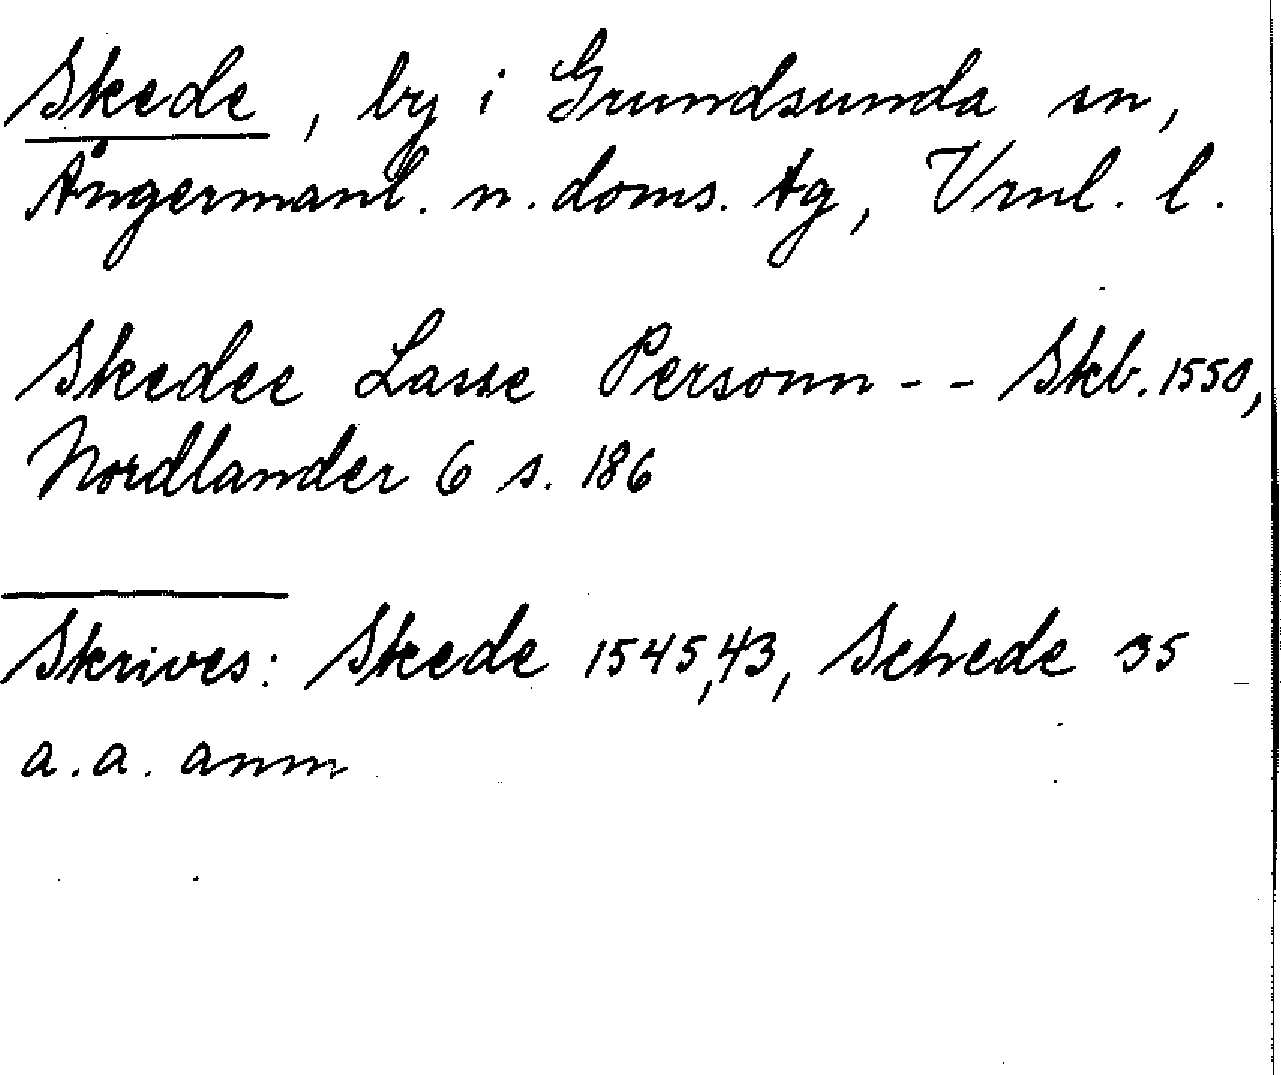 Skede, by i Grundsunda sn,
Ångermanl. n. doms. tg, Vrnl. l.
Skedee Lasse Personn - - Skb. 1550,
Nordlander 6 s. 186
Skrives: Skede 1545,43, Schede 35
a. a. anm